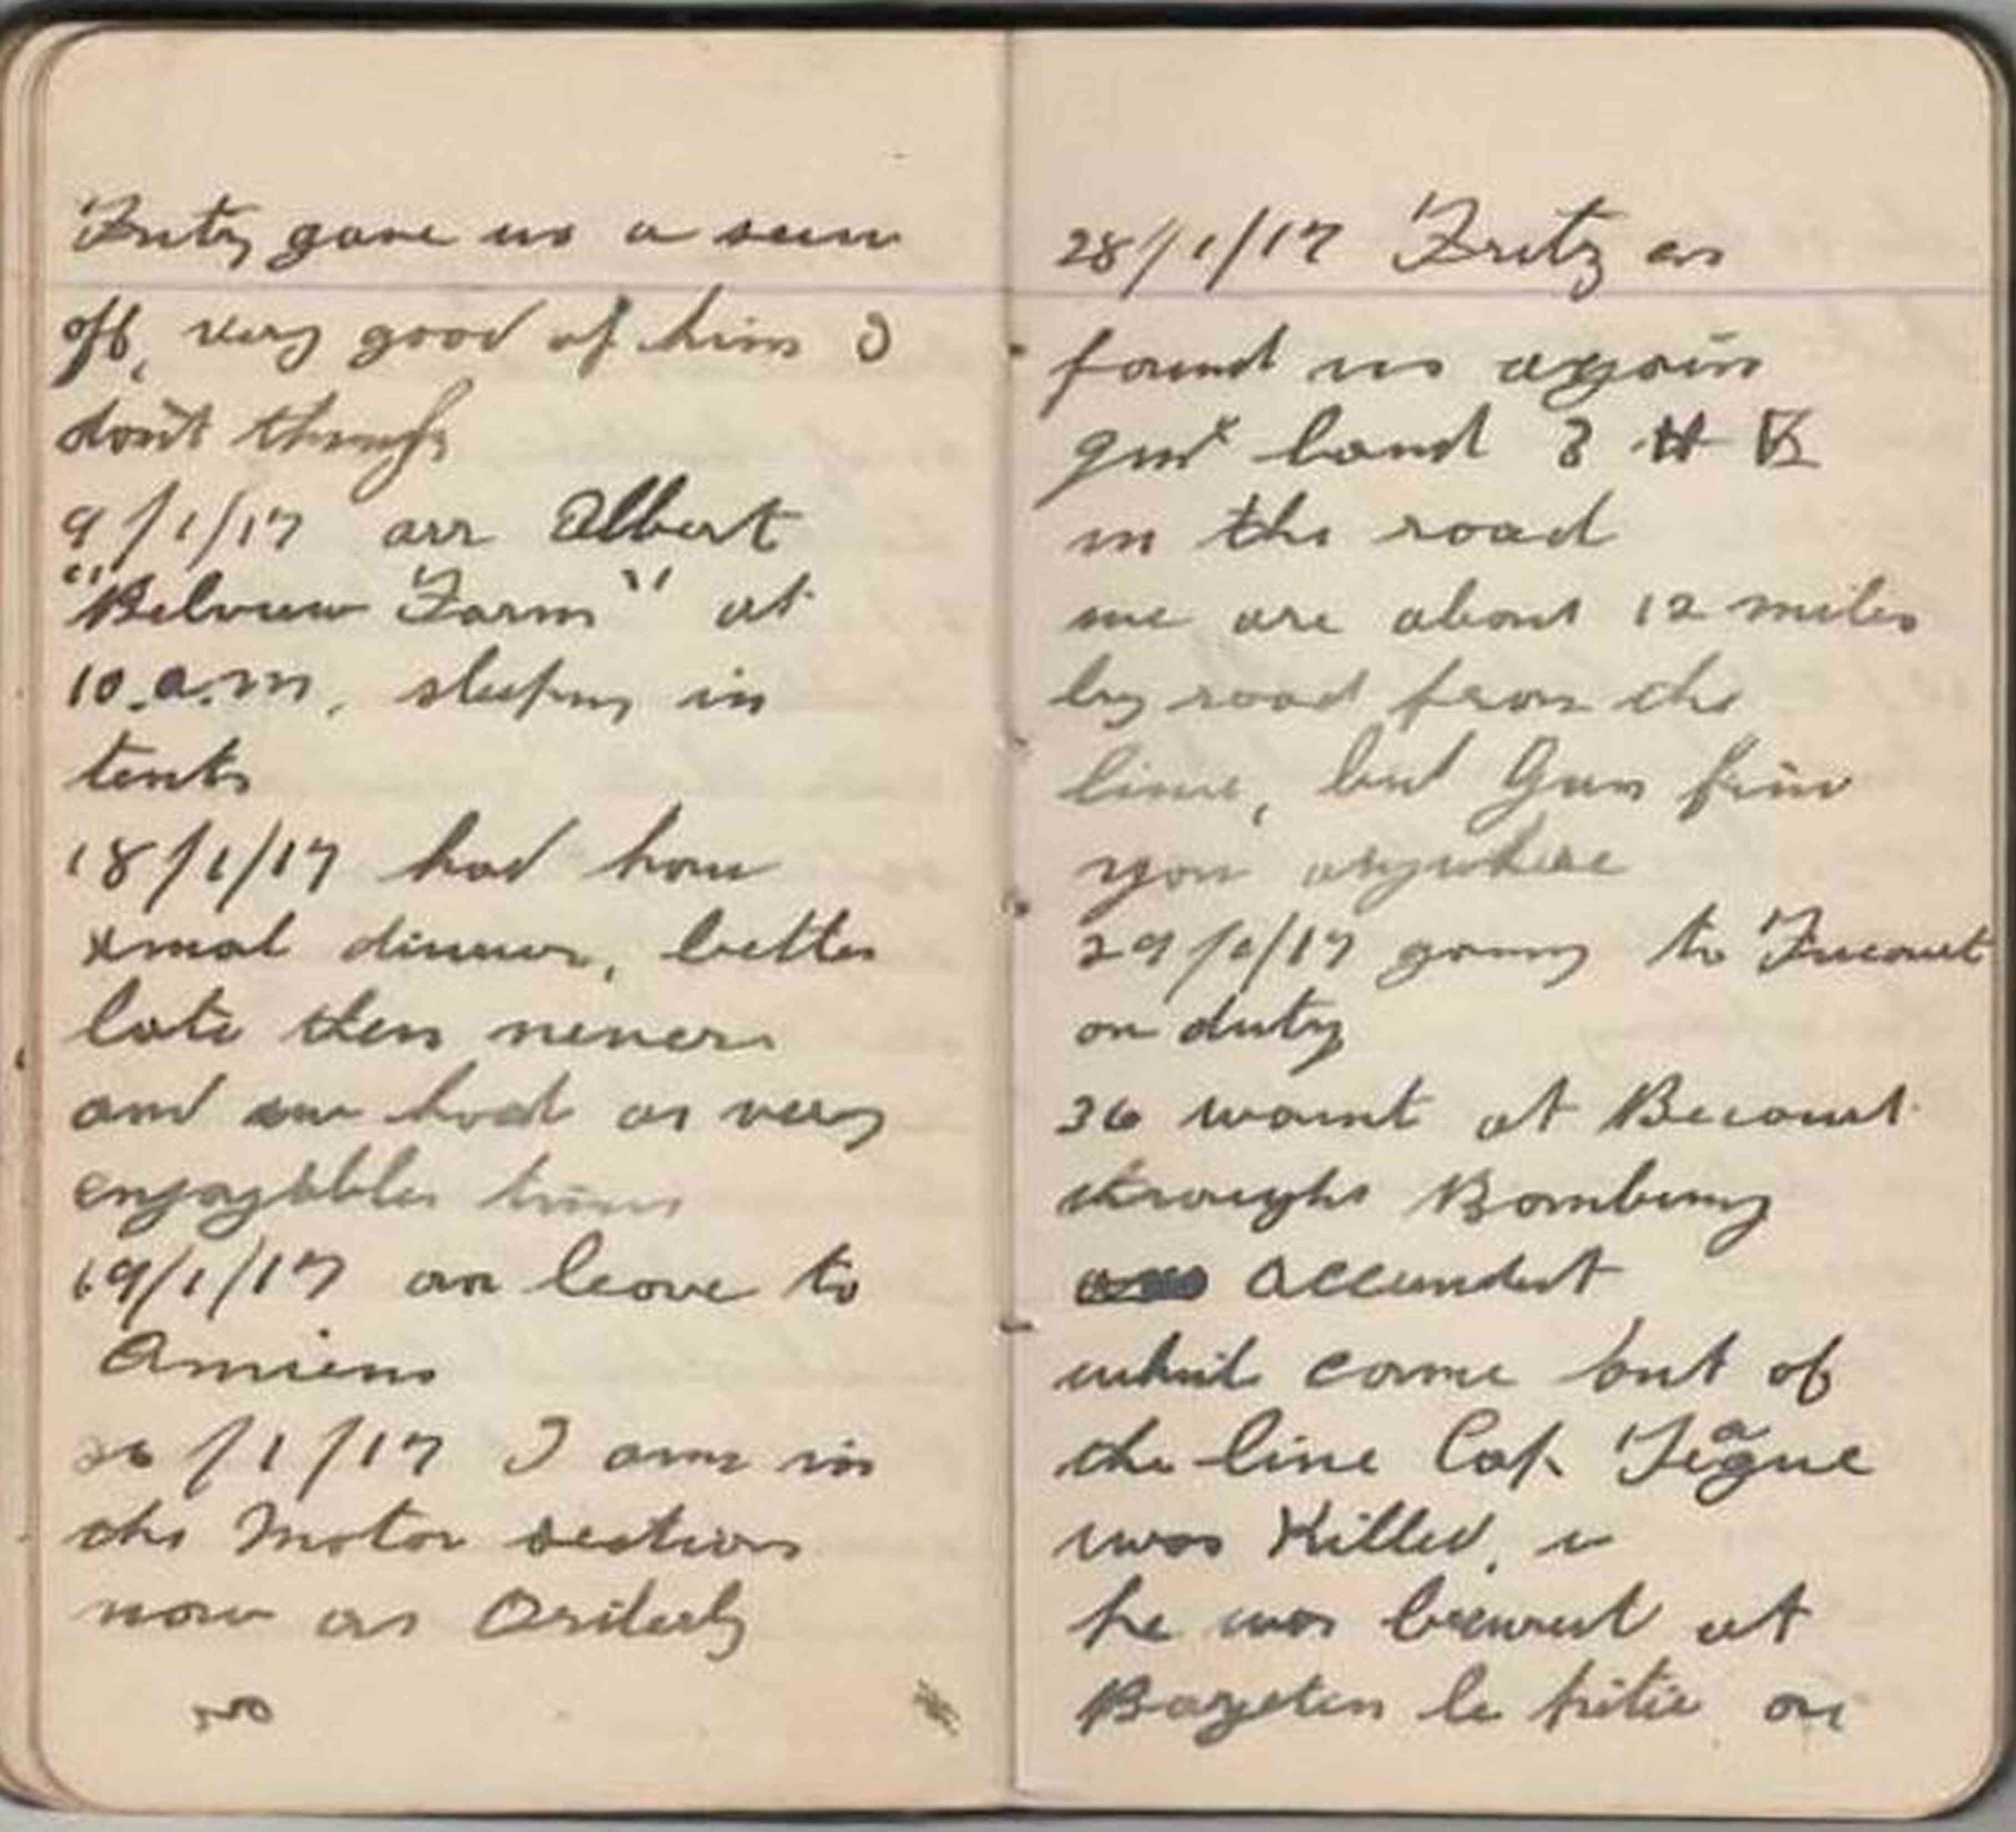 Fritz gave us a seen
off, very good of him I
don't think
9/1/17 arr Albert
"Belview Farm" at
10.a.m, sleeping in
tents
18/1/17 had
xmas dinner, better
late then never
and we had a very
enjoyable time
19/1/17 on leave to
Amiens
26/1/17 I am in
the Motor section
now as Orderly
28/1/17 Fritz as
found us again
land 3 H E
in the road
we are about 12 miles
by road from the
line, but Gun
you anywhere
29/1/17 going to Fricourt
on duty
36 wount at Becourt
through Bombing
accundent
whil come out of
the line Cap Teague
was Killed,
he was at
Bazeten le petie on